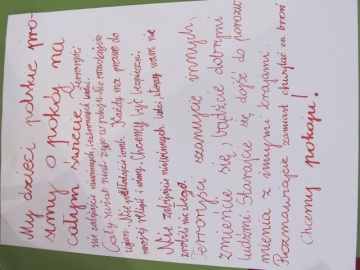 My dzieci polskie pro-
simy o pokój na
całym świecie. Terroryści
nie zabijajcie niewinnych, bezbronnych ludzi.
Cały świat niech żyje w pokoju
Każdy ma prawo do
swojej religii i wiary. Chcemy być bezpieczni.
Nie zabijajcie niewinnych ludzi, którzy wam nic
Terroryści szanujcie innych,
zmieńcie się, bądźcie dobrymi
ludźmi. Starajcie się dojść do porozu-
mienia z innymi krajami.
Rozmawiajcie zamiast chwytać za broń
Chcemy pokoju!